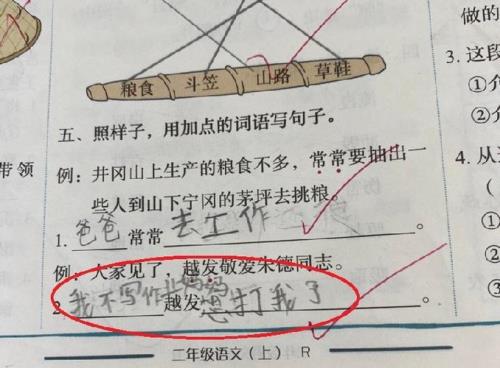 做的
粮食 斗笠 山路 草鞋
3. 这段
①介
②介
五、照样子，用加点的词语写句子。
带领
例：井冈山上生产的粮食不多，常常要抽出一
些人到山下宁冈的茅坪去挑粮。
4. 从
（
①
②
③
1. 爸爸 常常 去工作 。
例：人家见了，越发敬爱朱德同志。
2. 我不写作业妈妈 越发想打我了 。
二年级语文（上） R